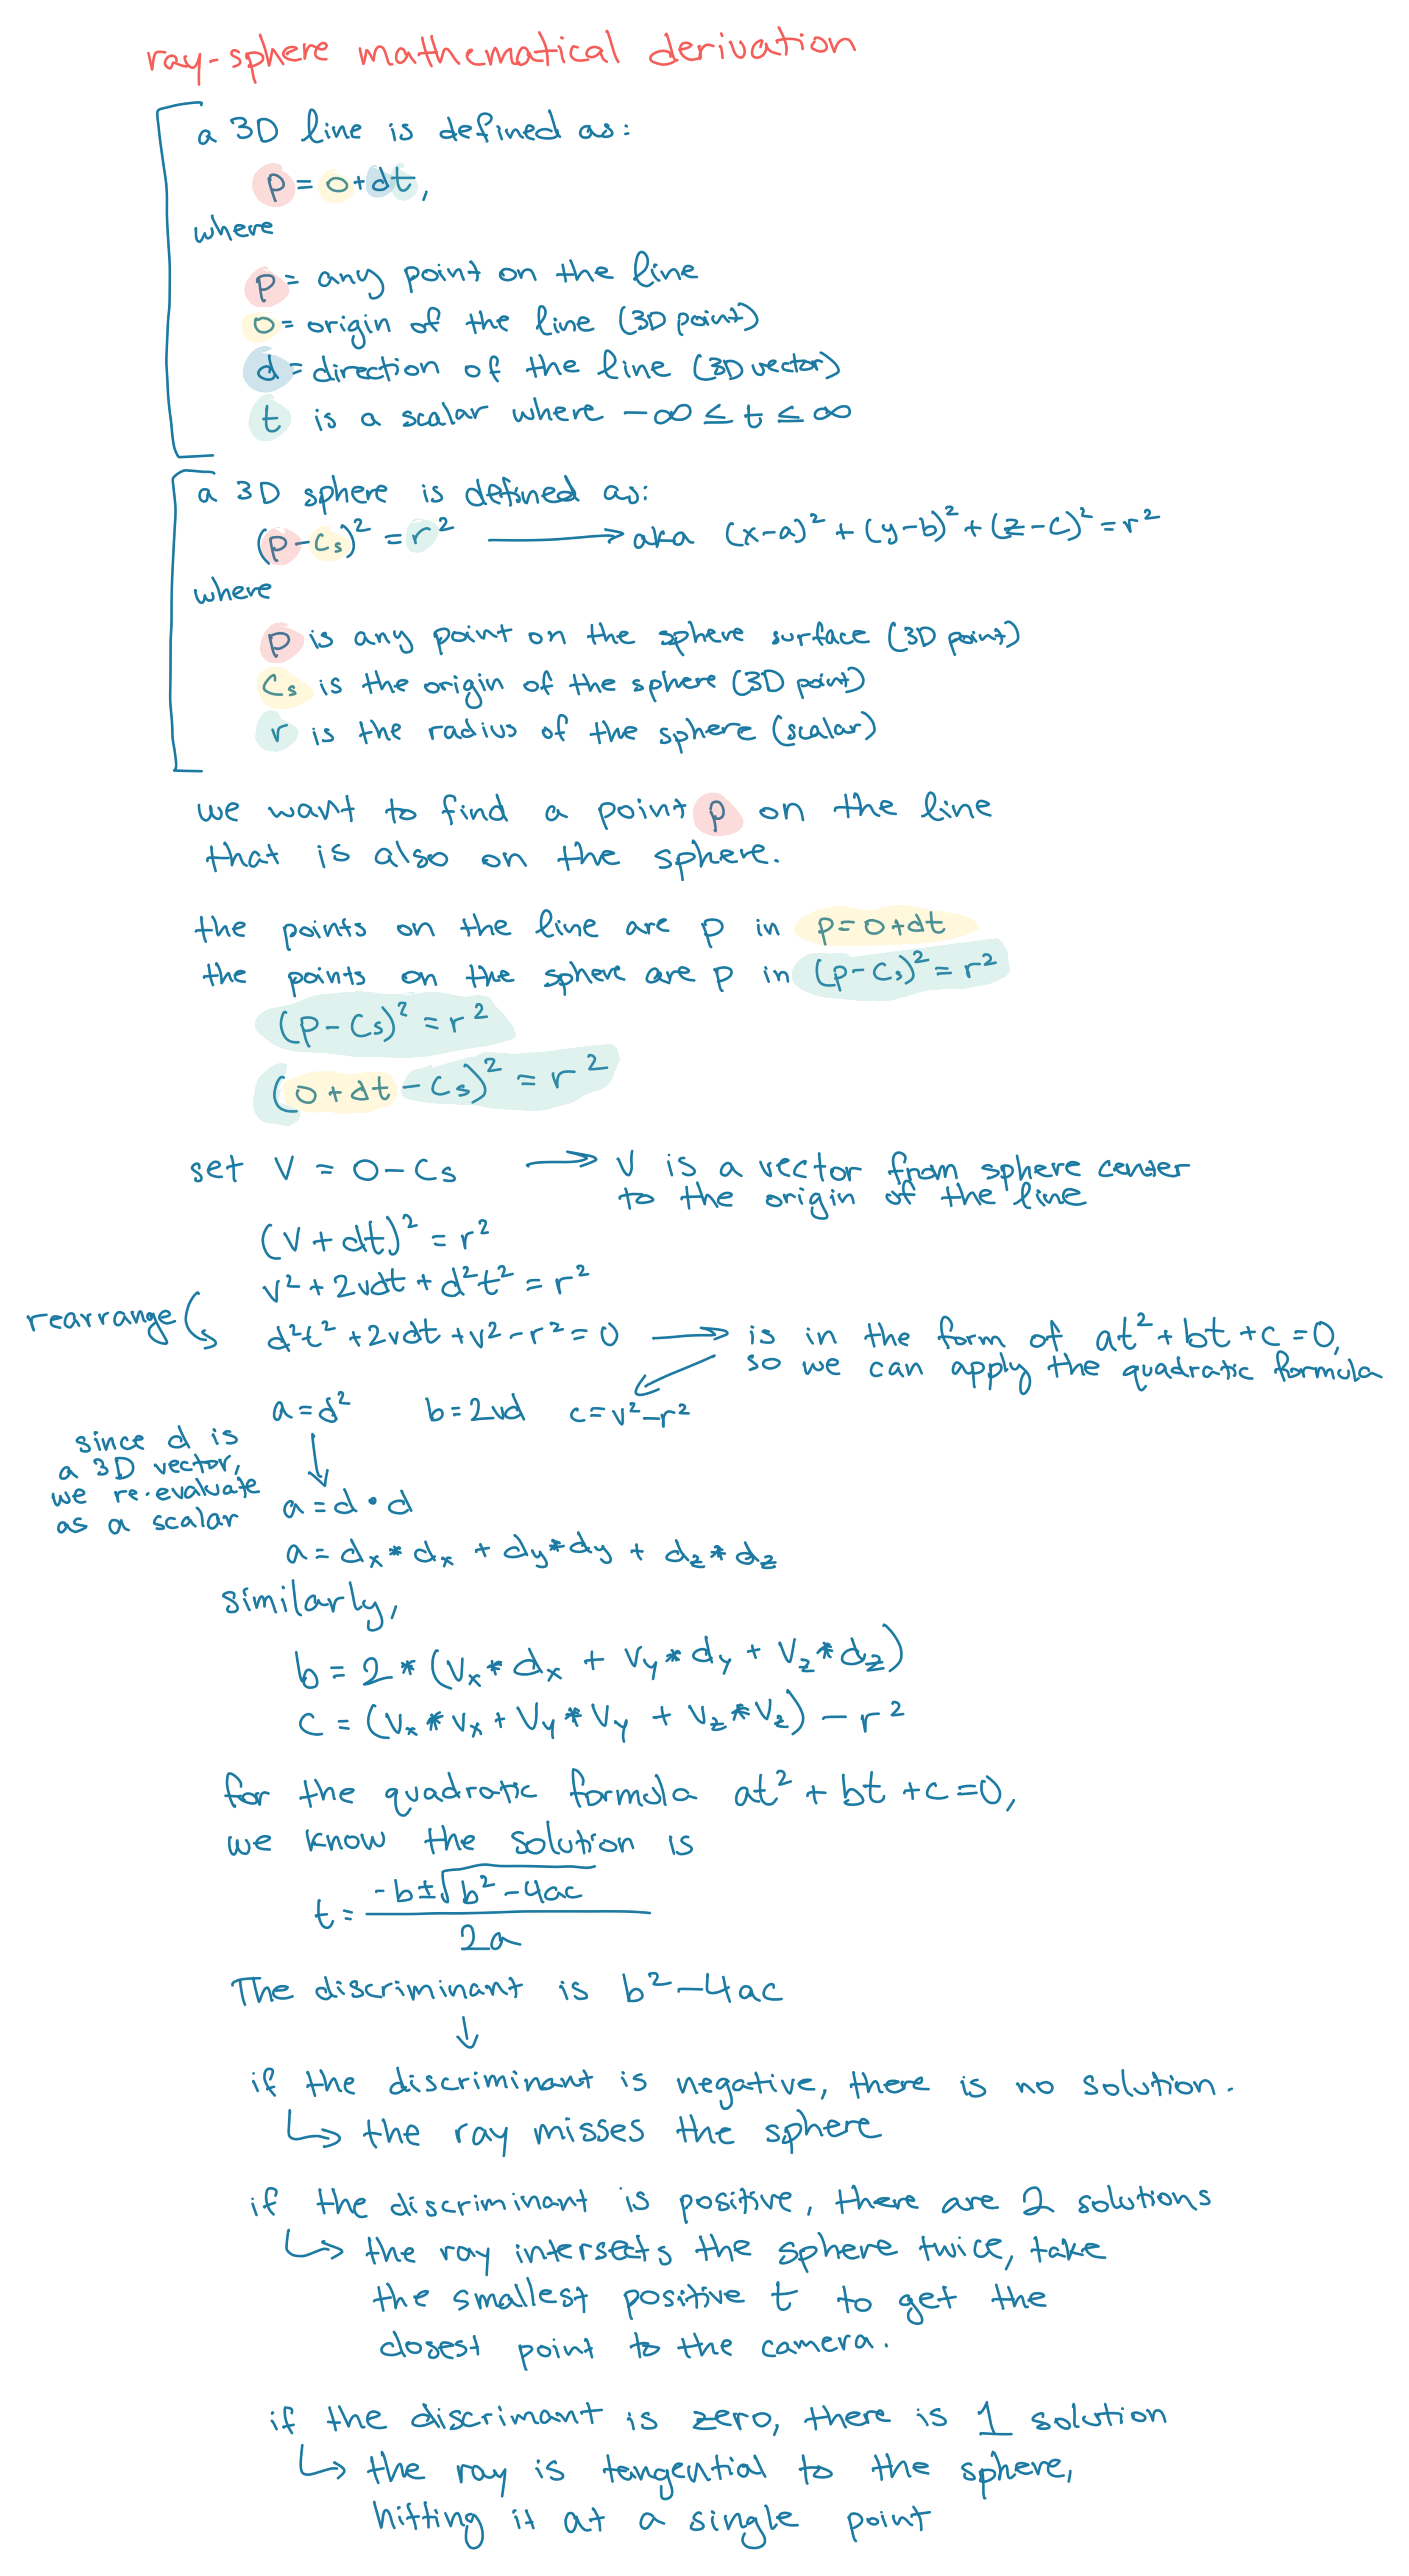 ray-sphere mathematical derivation
a 3D line is defined as:
p = o + dt,
where
p = any point on the line
o = origin of the line (3D point)
d = direction of the line (3D vector)
t is a scalar where -∞ ≤ t ≤ ∞
a 3D sphere is defined as:
(p - Cs)² = r² → aka (x-a)² + (y-b)² + (z-c)² = r²
where
p is any point on the sphere surface (3D point)
Cs is the origin of the sphere (3D point)
r is the radius of the sphere (scalar)
we want to find a point p on the line
that is also on the sphere.
the points on the line are p in p = o + dt
the points on the sphere are p in (p - Cs)² = r²
(p - Cs)² = r²
(o + dt - Cs)² = r²
set v = o - Cs → v is a vector from sphere center
to the origin of the line
(v + dt)² = r²
v² + 2vdt + d²t² = r²
rearrange
d²t² + 2vdt + v² - r² = 0 → is in the form of at² + bt + c = 0,
so we can apply the quadratic formula
a = d² b = 2vd c = v² - r²
since d is
a 3D vector,
we re-evaluate
as a scalar
a = d • d
a = dx * dx + dy * dy + dz * dz
similarly,
b = 2 * (vx * dx + vy * dy + vz * dz)
c = (vx * vx + vy * vy + vz * vz) - r²
for the quadratic formula at² + bt + c = 0,
we know the solution is
t = (-b ± √(b² - 4ac)) / 2a
The discriminant is b² - 4ac
↓
if the discriminant is negative, there is no solution.
↳ the ray misses the sphere
if the discriminant is positive, there are 2 solutions
↳ the ray intersects the sphere twice, take
the smallest positive t to get the
closest point to the camera.
if the discrimant is zero, there is 1 solution
↳ the ray is tangential to the sphere,
hitting it at a single point